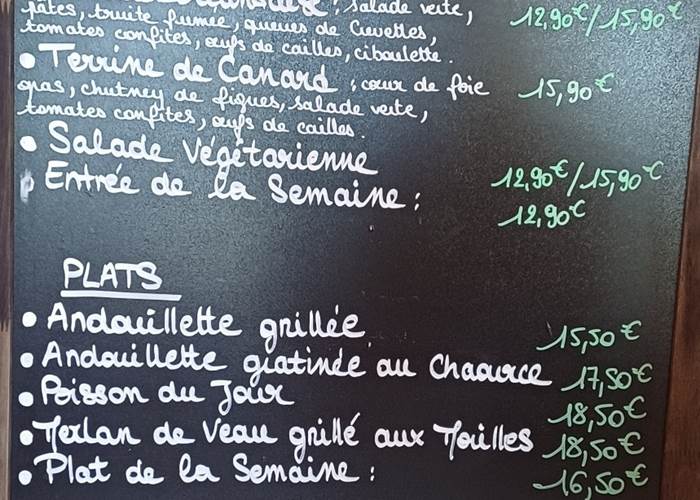 salade verte,
pâtes, truite fumée, queues de Crevettes, 12,90€/15,90€
tomates confites, œufs de cailles, ciboulette.
• Terrine de Canard : cœur de foie 15,90€
gras, chutney de figues, salade verte,
tomates confites, œufs de cailles.
• Salade Végétarienne 12,90€/15,90€
• Entrée de la Semaine : 12,90€
PLATS
• Andouillette grillée 15,50€
• Andouillette gratinée au Chaource 17,50€
• Poisson du Jour 18,50€
• Merlan de Veau grillé aux Morilles 18,50€
• Plat de la Semaine : 16,50€